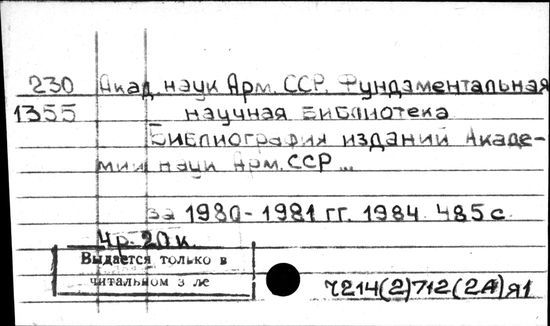 230 Акад. наук Арм. ССР. Фундаментальная
1355 научная библиотека
Библиография изданий Акаде-
мии наук Арм. ССР ...
за 1980-1981 гг. 1984. 485 с.
4р. 20 к.
Выдаётся только в
читальном з ле
Ч214(2)712(2А)я1